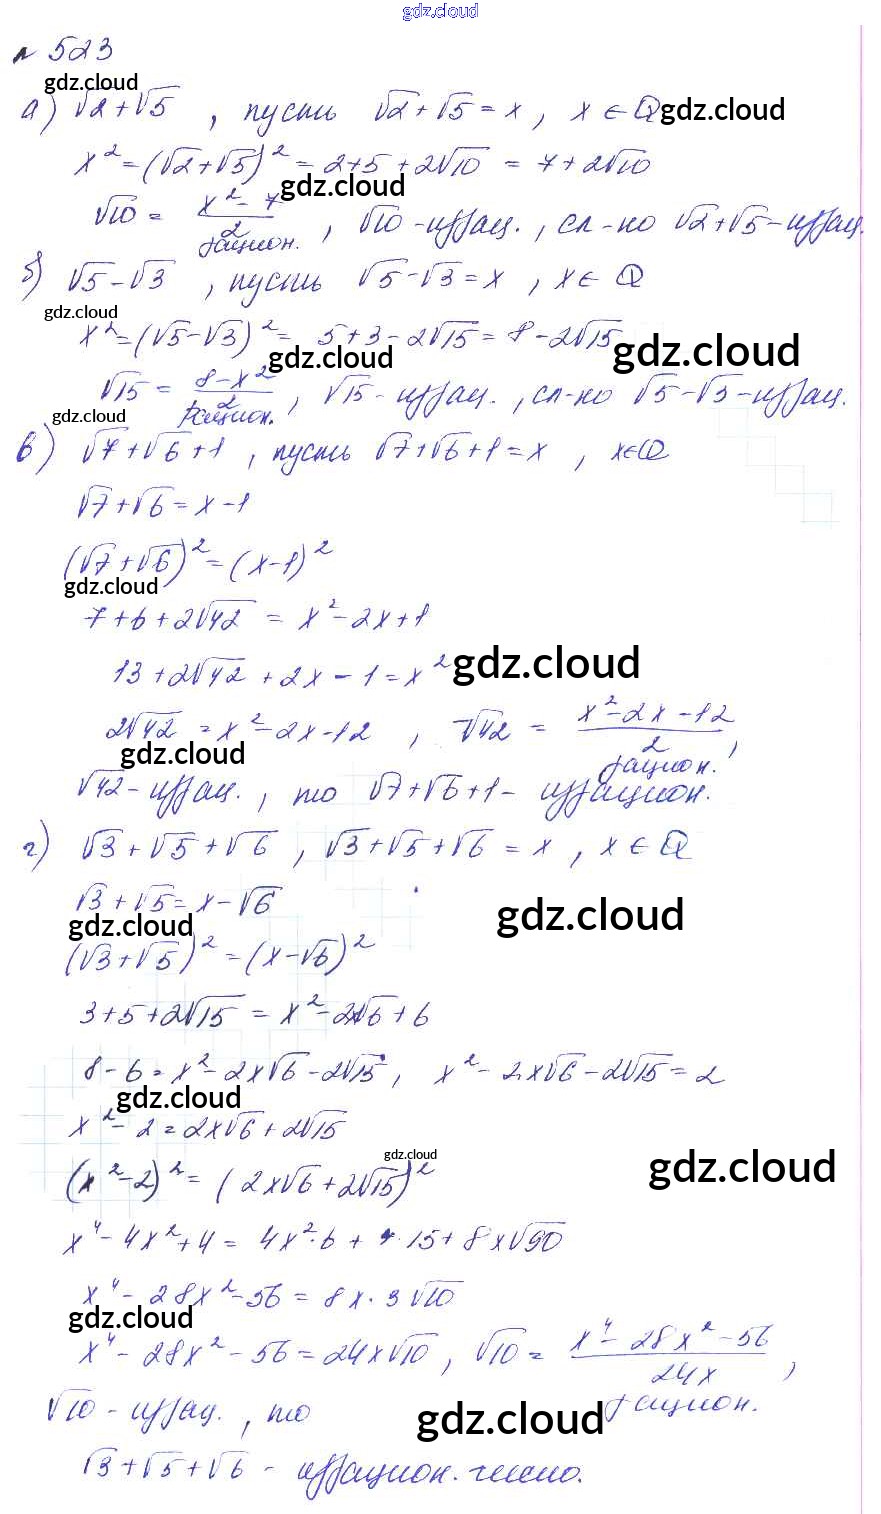 gdz.cloud
№ 523
gdz.cloud
а) √2+√5 , пусть √2+√5=x, x∈Q gdz.cloud
x²=(√2+√5)²=2+5+2√10 = 7+2√10
gdz.cloud
√10 = (x²-7)/2 , √10-иррац., сл-но √2+√5-иррац.
рацион.
б) √5-√3 , пусть √5-√3=x , x∈Q
gdz.cloud
x²=(√5-√3)²= 5+3-2√15=8-2√15
gdz.cloud gdz.cloud
√15 = (8-x²)/2 , √15-иррац., сл-но √5-√3-иррац.
рацион.
gdz.cloud
в) √7+√6+1 , пусть √7+√6+1=x , x∈Q
√7+√6=x-1
(√7+√6)²=(x-1)²
gdz.cloud
7+6+2√42 = x²-2x+1
13+2√42+2x-1=x² gdz.cloud
2√42=x²-2x-12 , √42 = (x²-2x-12)/2 ,
gdz.cloud рацион.
√42-иррац., то √7+√6+1- иррацион.
г) √3+√5+√6 , √3+√5+√6=x , x∈Q
√3+√5=x-√6
gdz.cloud gdz.cloud
(√3+√5)²=(x-√6)²
3+5+2√15 = x²-2x√6+6
8-6=x²-2x√6-2√15 , x²-2x√6-2√15=2
gdz.cloud
x²-2=2x√6+2√15
gdz.cloud gdz.cloud
(x²-2)²=(2x√6+2√15)²
x⁴-4x²+4=4x²·6+4·15+8x√90
x⁴-28x²-56=8x·3√10
gdz.cloud
x⁴-28x²-56=24x√10 , √10= (x⁴-28x²-56)/24x ,
√10-иррац., то gdz.cloud рацион.
√3+√5+√6 - иррацион. число.